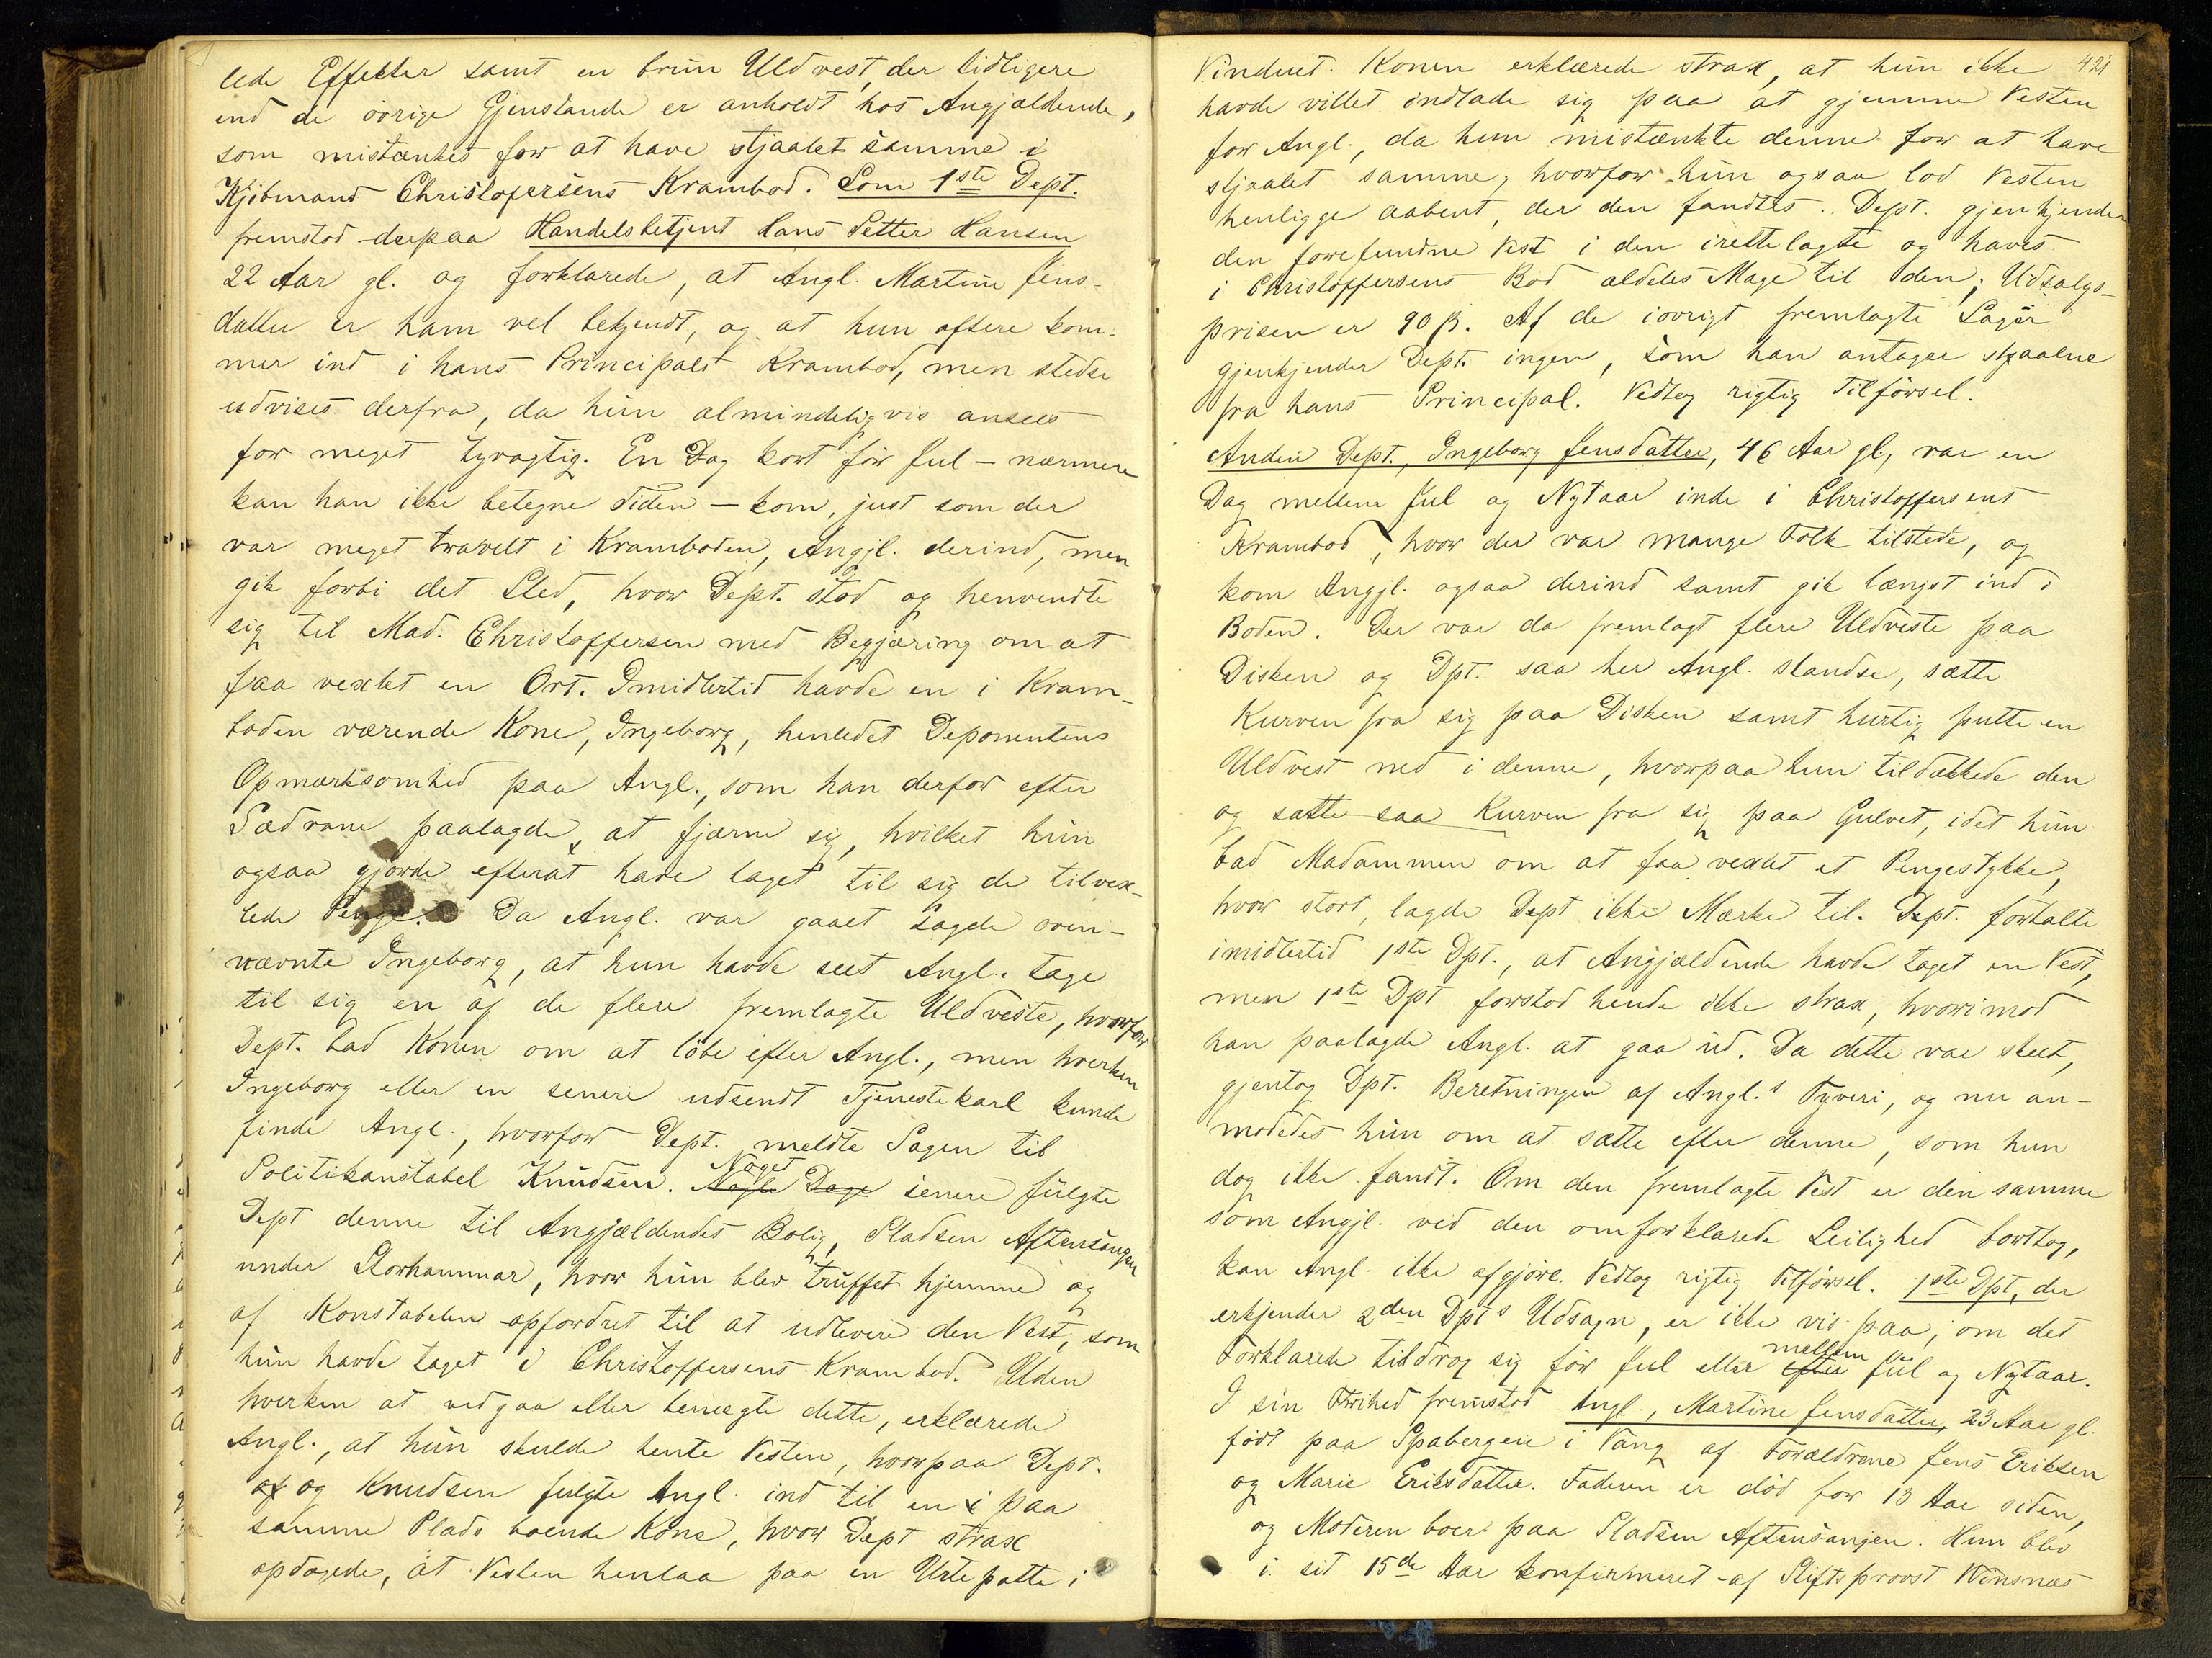 lede Effekter samt en brun Uldvest, der tidligere
end de øvrige Gjenstande er anholdt hos Angjældende,
som mistænkes for at have stjaalet samme i
Kjøbmand Christofersens Krambod. Som 1ste Dept.
fremstod derpaa Handelsbetjent Hans Petter Hansen
22 Aar gl. og forklarede, at Angl. Martine Jens-
datter er ham vel bekjendt, og at hun oftere kom-
mer ind i hans Principals Krambod, men stedse
udvises derfra, da hun almindeligvis ansees
for meget tyvagtig. En Dag kort før Jul - nærmere
kan han ikke betegne Tiden - kom, just som der
var meget travelt i Kramboden, Angjl. derind, men
gik forbi det Sted, hvor Dept. stod og henvendte
sig til Mad. Christoffersen med Begjæring om at
faa vexlet en Ort. Imidlertid havde en i Kram-
boden værende Kone, Ingeborg, henledet Deponentens
Opmærksomhed paa Angl., som han derfor efter
Sædvane paalagde at fjærne sig, hvilket hun
ogsaa gjorde efterat have taget til sig de tilvex-
lede Penge. Da Angl. var gaaet sagde oven-
nævnte Ingeborg, at hun havde seet Angl. tage
til sig en af de flere fremlagte Uldveste, hvorfor
Dept. bad Konen om at løbe efter Angl., men hverken
Ingeborg eller en senere udsendt Tjenestekarl kunde
finde Angl., hvorfor Dept. meldte Sagen til
Politikonstabel Knudsen. Nogle Dage Noget senere fulgte
Dept denne til Angjældendes Bolig, Pladsen Aftensangen
under Storhammar, hvor hun blev truffet hjemme og
af Konstabelen opfordret til at udlevere den Vest, som
hun havde taget i Christoffersens Krambod. Uden
hverken at vedgaa eller benægte dette, erklærede
Angl., at hun skulde hente Vesten, hvorpaa Dept.
af og Knudsen fulgte Angl. ind til en i paa
samme Plads boende Kone, hvor Dept strax
opdagede, at Vesten henlaa paa en Urtepotte i
421
Vinduet. Konen erklærede strax, at hun ikke
havde villet indlade sig paa at gjemme Vesten
for Angl., da hun mistænkte denne for at have
stjaalet samme, hvorfor hun ogsaa lod Vesten
henligge aabent, der den fandtes. Dept. gjenkjender
den forefundne Vest i den irettelagte og haves
i Christoffersens Bod aldeles Mage til den; Udsalgs-
prisen er 90 ß. Af de iøvrigt fremlagte Sager
gjenkjender Dept. ingen, som han antager stjaalne
fra hans Principal. Vedtog rigtig Tilførsel.
Anden Dept., Ingeborg Jensdatter, 46 Aar gl., var en
Dag mellem Jul og Nytaar inde i Christoffersens
Krambod, hvor der var mange Folk tilstede, og
kom Angjl. ogsaa derind samt gik længst ind i
Boden. Der var da fremlagt flere Uldveste paa
Disken og Dpt. saa her Angl. standse, sætte
Kurven fra sig paa Disken samt hurtig putte en
Uldvest ned i denne, hvorpaa hun tildækkede den
og satte saa Kurven fra sig paa Gulvet, idet hun
bad Madammen om at faa vexlet et Pengestykke,
hvor stort, lagde Dept ikke Mærke til. Dept. fortalte
imidlertid 1ste Dpt., at Angjældende havde taget en Vest,
men 1ste Dpt forstod hende ikke strax, hvorimod
han paalagde Angl. at gaa ud. Da dette var skeet,
gjentog Dpt. Beretningen af Angl.s Tyveri, og nu an-
modedes hun om at sætte efter denne, som hun
dog ikke fandt. Om den fremlagte Vest er den samme
som Angjl. ved den omforklarede Leilighed borttog,
kan Angl. ikke afgjøre. Vedtog rigtig Tilførsel. 1ste Dpt, der
erkjender 2den Dpts Udsagn, er ikke vis paa, om det
Forklarede tildrog sig før Jul eller efter mellem Jul og Nytaar.
I sin Frihed fremstod Angl., Martine Jensdatter, 23 Aar gl.
født paa Spabergeie i Vang af Forældrene Jens Eriksen
og Marie Eriksdatter. Faderen er død for 13 Aar siden,
og Moderen boer paa Pladsen Aftensangen. Hun blev
i sit 15de Aar konfirmeret af Stiftsprovst Wensnæs